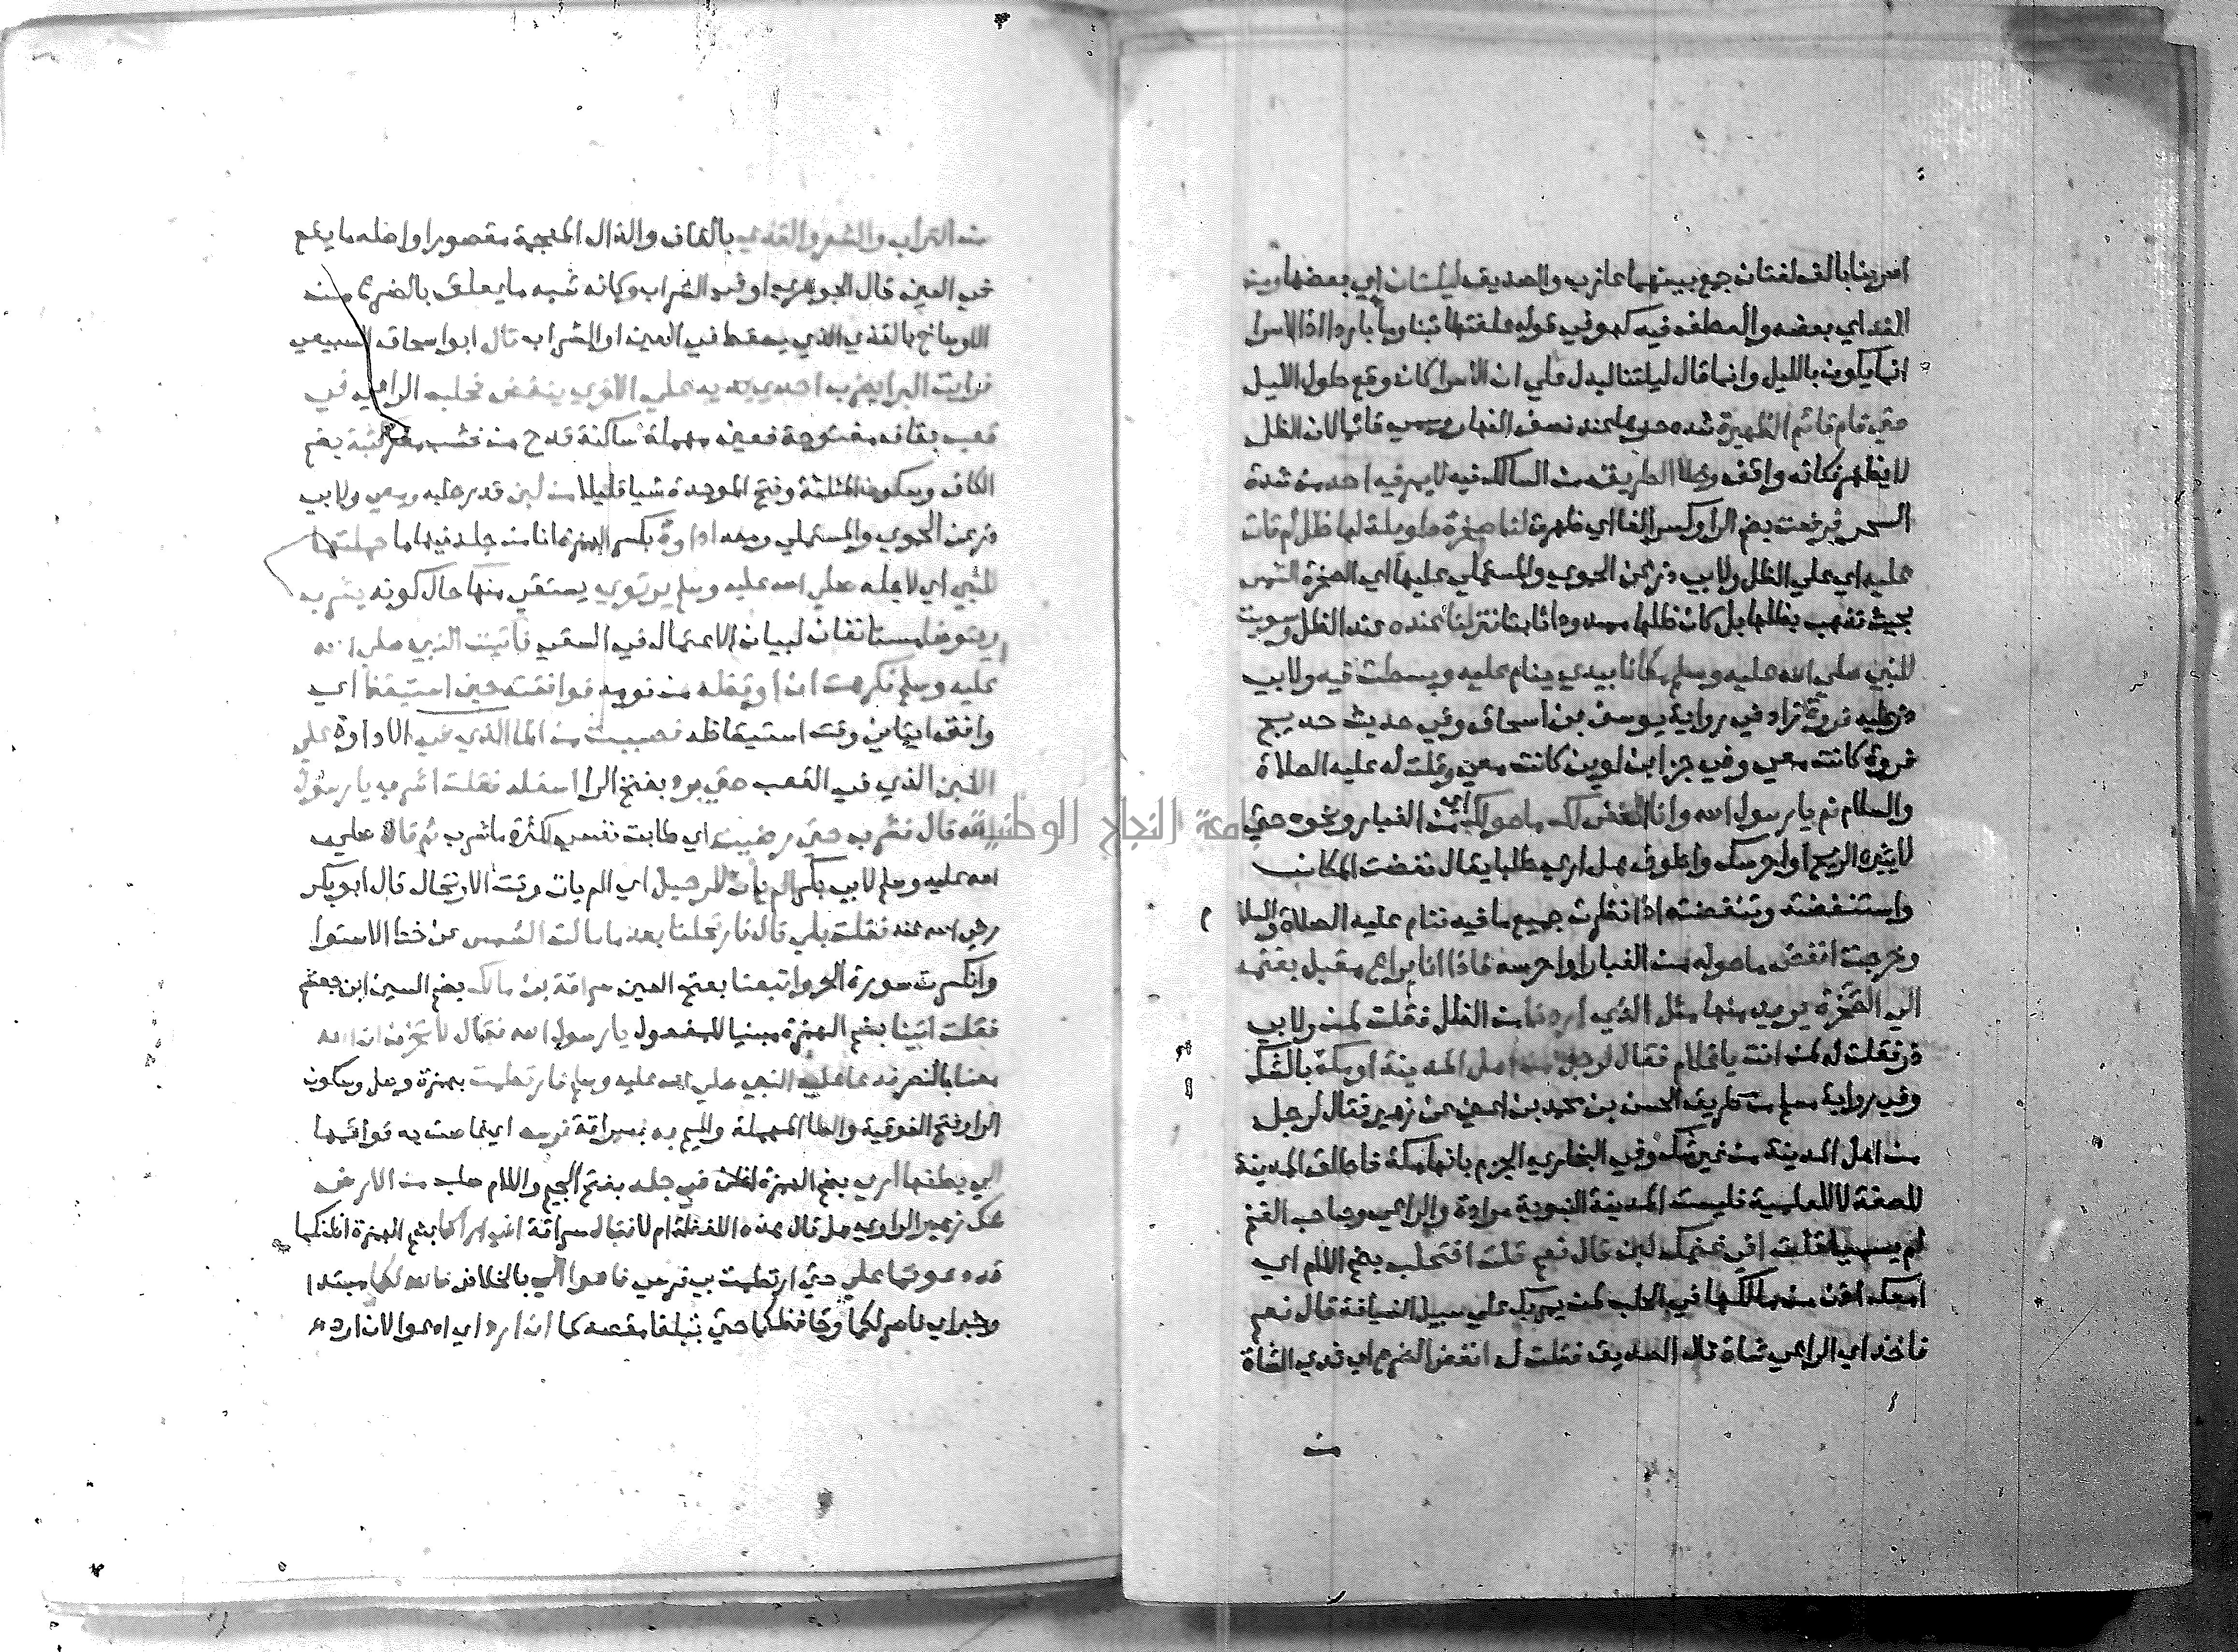 اسرينا بالف لغتان جمع بينهما عازب والصديق ليلتنا اي بعضها ومن
الغد اي بعضه والعطف فيه كهو في قوله علفتها تبنا وماء باردا اذ الاسرا
انما يكون بالليل وانما قال ليلتنا ليدل علي ان الاسرا كان وقع طول الليل
حتي قام قائم الظهيرة شدة حرها عند نصف النهار وسمي قائما لان الظل
لا يظهر فكانه واقف وخلا الطريق من السالك فيه لا يمر فيه احد من شدة
الحر فرفعت بضم الرا وكسر الفا اي ظهرت لنا صخرة طويلة لها ظل لم تات
عليه اي علي الظل ولابي ذر عن الحموي والمستملي عليها اي الصخرة الشمس
بحيث تذهب بظلها بل كان ظلها ممدودا ثابتا فنزلنا عنده عند الظل وسويت
للنبي صلي الله عليه وسلم مكانا بيدي ينام عليه وبسطت فيه ولابي
ذر عليه فروة زاد في رواية يوسف بن اسحاق وفي حديث حديج
فروة كانت معي وفي جز ابن لوين كانت معي وقلت له عليه الصلاة
والسلام نم يا رسول الله وانا انفض لك ما حولك اي من الغبار ونحوه حتي
لا يثيره الريح او احرسك واطوف هل اري طلبا يقال نفضت المكان
واستنفضته وتنفضته اذا نظرت جميع ما فيه فنام عليه الصلاة والسلا م
وخرجت انفض ما حوله من الغبار او احرسه فاذا انا براع مقبل بغنمه
الي الصخرة يريد منها مثل الذي اردنا من الظل فقلت لمن ولابي
ذر فقلت له لمن انت يا غلام فقال لرجل من اهل المدينة او مكة بالشك
وفي رواية مسلم من طريق الحسن بن محمد بن اعين عن زهير فقال لرجل
من اهل المدينة من غير شك وفي البخاري الجزم بانها مكة فاطلاق المدينة
للصفة لا للعلمية فليست المدينة النبوية مرادة والراعي وصاحب الغنم
لم يسميا قلت افي غنمك لبن قال نعم قلت افتحلب بضم اللام اي
امعك اذن من مالكها في الحلب لمن يمر بك علي سبيل الضيافة قال نعم
فاخذ اي الراعي شاة قال الصديق فقلت له انفض الضرع اي ثدي الشاة
من
من التراب والشعر والقذي بالقاف والذال المعجمة مقصورا واصله ما يقع
في العين قال الجوهري او في الشراب وكانه شبه ما يعلق بالضرع من
الاوساخ بالقذي الذي يسقط في العين او الشراب قال ابو اسحاق السبيعي
فرايت البرا يضرب احدي يديه علي الاخري ينفض فحلب الراعي في
قعب بقاف مفتوحة فعين مهملة ساكنة قدح من خشب مقعر كثبة بضم
الكاف وسكون المثلثة وفتح الموحدة شيا قليلا من لبن قدر حلبه ومعي ولابي
ذر عن الحموي والمستملي ومعه اداوة بكسر الهمزة انا من جلد فيها ما حملتها
للنبي اي لاجله صلي الله عليه وسلم يرتوي يستقي منها حال كونه يشرب
ويتوضا مستانفان لبيان الاعتمال في السقي فاتيت النبي صلي الله
عليه وسلم فكرهت ان اوقظه من نومه فوافقته حين استيقظ اي
وافق اتياني وقت استيقاظه فصببت من الما الذي في الاداوة علي
اللبن الذي في القعب حتي برد بفتح الرا اسفله فقلت اشرب يا رسول
الله قال فشرب حتي رضيت اي طابت نفسي لكثرة ما شرب ثم قال صلي
الله عليه وسلم لابي بكر الم يان للرحيل اي الم يات وقت الارتحال قال ابو بكر
رضي الله عنه فقلت بلي قال فارتحلنا بعد ما مالت الشمس عن خط الاستوا
وانكسرت سورة الحر واتبعنا بفتح العين سراقة بن مالك بضم السين ابن جعشم
فقلت اتينا بضم الهمزة مبنيا للمفعول يا رسول الله فقال لا تحزن ان الله
معنا بالنصر فدعا عليه النبي صلي الله عليه وسلم فارتطمت بهمزة وصل وسكون
الرا وفتح الفوقية والطا المهملة والميم به بسراقة فرسه اي غاصت به قوائمها
الي بطنها اري بضم الهمزة اظن في جلد بفتح الجيم واللام صلب من الارض
شك زهير الراوي هل قال هذه اللفظة ام لا فقال سراقة اني اراكما بضم الهمزة اظنكما
قد دعوتما علي حتي ارتطمت بي فرسي فادعوا لي بالخلاص فالله لكما مبتدا
وخبر اي ناصر لكما وحافظكما حتي تبلغا مقصدكما ان ارد اي ادعوا لان ارد